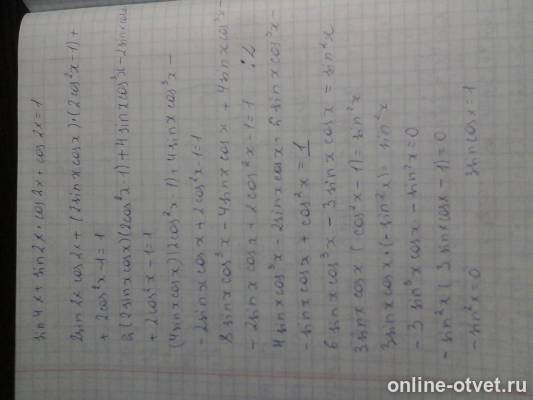 sin4x + sin2x • cos2x + cos2x = 1
2sin2x cos2x + (2sinx cosx)•(2cos²x-1) +
+ 2cos²x-1 = 1
(2sinx cosx)(2cos²x-1) + 4sinx cos³x - 2sinx cosx
+ 2cos²x-1 = 1
(4sinx cosx)(2cos²x-1) + 4sinx cos³x -
- 2sinx cosx + 2cos²x-1 = 1
8sinx cos³x - 4sinx cosx + 4sinx cos³x -
- 2sinx cosx + 2cos²x-1 = 1 :2
4sinx cos³x - 2sinx cosx + 2sinx cos³x -
- sinx cosx + cos²x = 1
6sinx cos³x - 3sinx cosx = sin²x
3sinx cosx (cos²x-1) = sin²x
3sinx cosx • (-sin²x) = sin²x
- 3sin³x cosx - sin²x = 0
- sin²x (3sinx cosx - 1) = 0
- sin²x = 0 sinx cosx = 1
online-otvet.ru